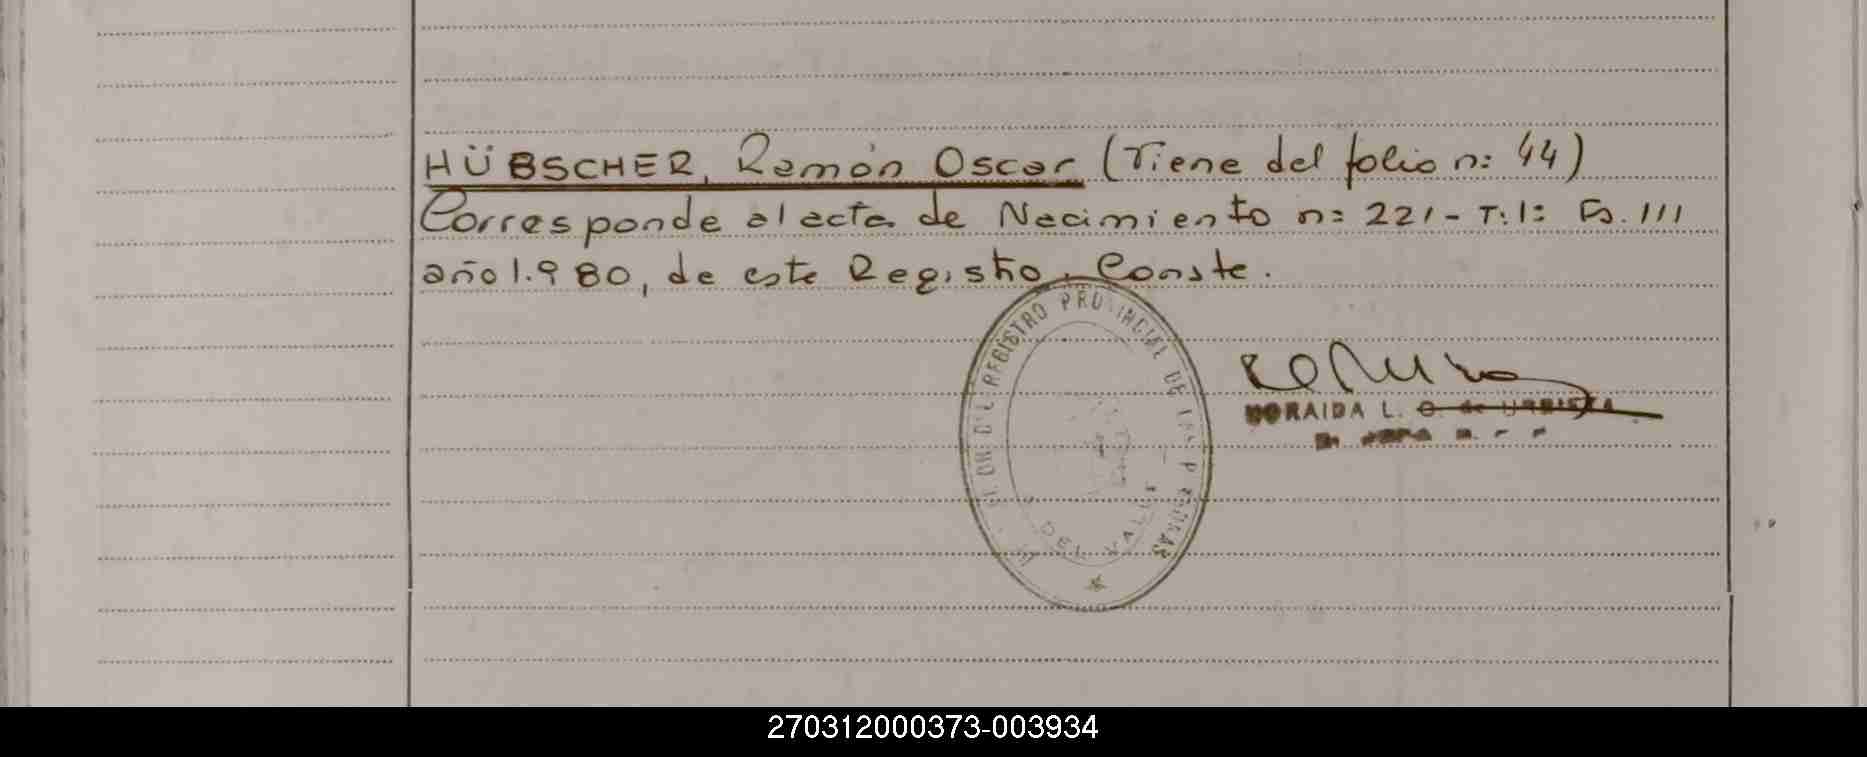 HÜBSCHER, Ramón Oscar (Viene del folio nº 44)
Corresponde al acta de Nacimiento nº 221 - T: 1º Fs. 111
año 1.980, de este Registro. Conste.
DEL REGISTRO PROVINCIAL DE LAS PERSONAS
DEL VALLE
NORAIDA L. O. de URBIETA
270312000373-003934